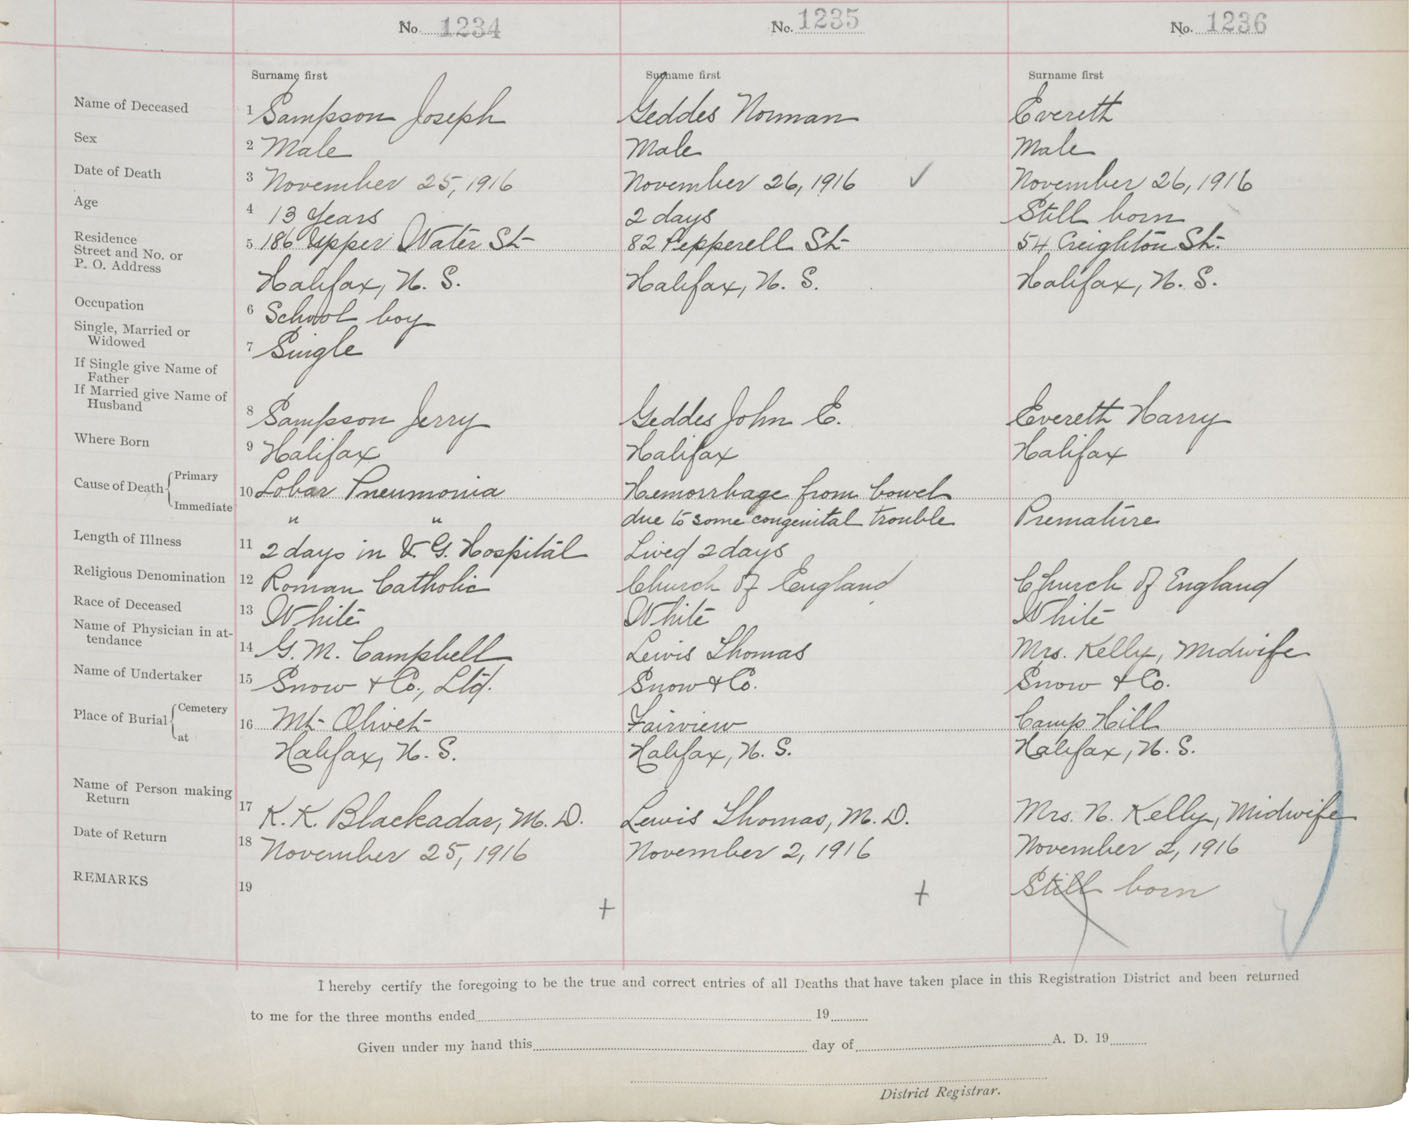 No. 1234 No. 1235 No. 1236
Surname first Surname first Surname first
Name of Deceased 1 Sampson Joseph Geddes Norman Everett
Sex 2 Male Male Male
Date of Death 3 November 25, 1916 November 26, 1916 ✓ November 26, 1916
Age 4 13 Years 2 days Still born
Residence
Street and No. or 5 186 Upper Water St 82 Pepperell St 54 Creighton St.
P. O. Address
Halifax, N. S. Halifax, N. S. Halifax, N. S.
Occupation 6 School boy
Single, Married or
Widowed 7 Single
If Single give Name of
Father
If Married give Name of
Husband 8 Sampson Jerry Geddes John E. Everett Harry
Where Born 9 Halifax Halifax Halifax
Cause of Death { Primary 10 Lobar Pneumonia Hemorrhage from bowel
Immediate " " due to some congenital trouble Premature
Length of Illness 11 2 days in V. G. Hospital Lived 2 days
Religious Denomination 12 Roman Catholic Church of England Church of England
Race of Deceased 13 White White White
Name of Physician in at-
tendance 14 G. M. Campbell Lewis Thomas Mrs. Kelly, Midwife
Name of Undertaker 15 Snow & Co., Ltd. Snow & Co. Snow & Co.
Place of Burial { Cemetery 16 Mt Olivet Fairview Camp Hill
at Halifax, N. S. Halifax, N. S. Halifax, N. S.
Name of Person making
Return 17 K. K. Blackadar, M. D. Lewis Thomas, M. D. Mrs. N. Kelly, Midwife
Date of Return 18 November 25, 1916 November 2, 1916 November 2, 1916
REMARKS 19 Still born
+ +
I hereby certify the foregoing to be the true and correct entries of all Deaths that have taken place in this Registration District and been returned
to me for the three months ended 19
Given under my hand this day of A. D. 19
District Registrar.